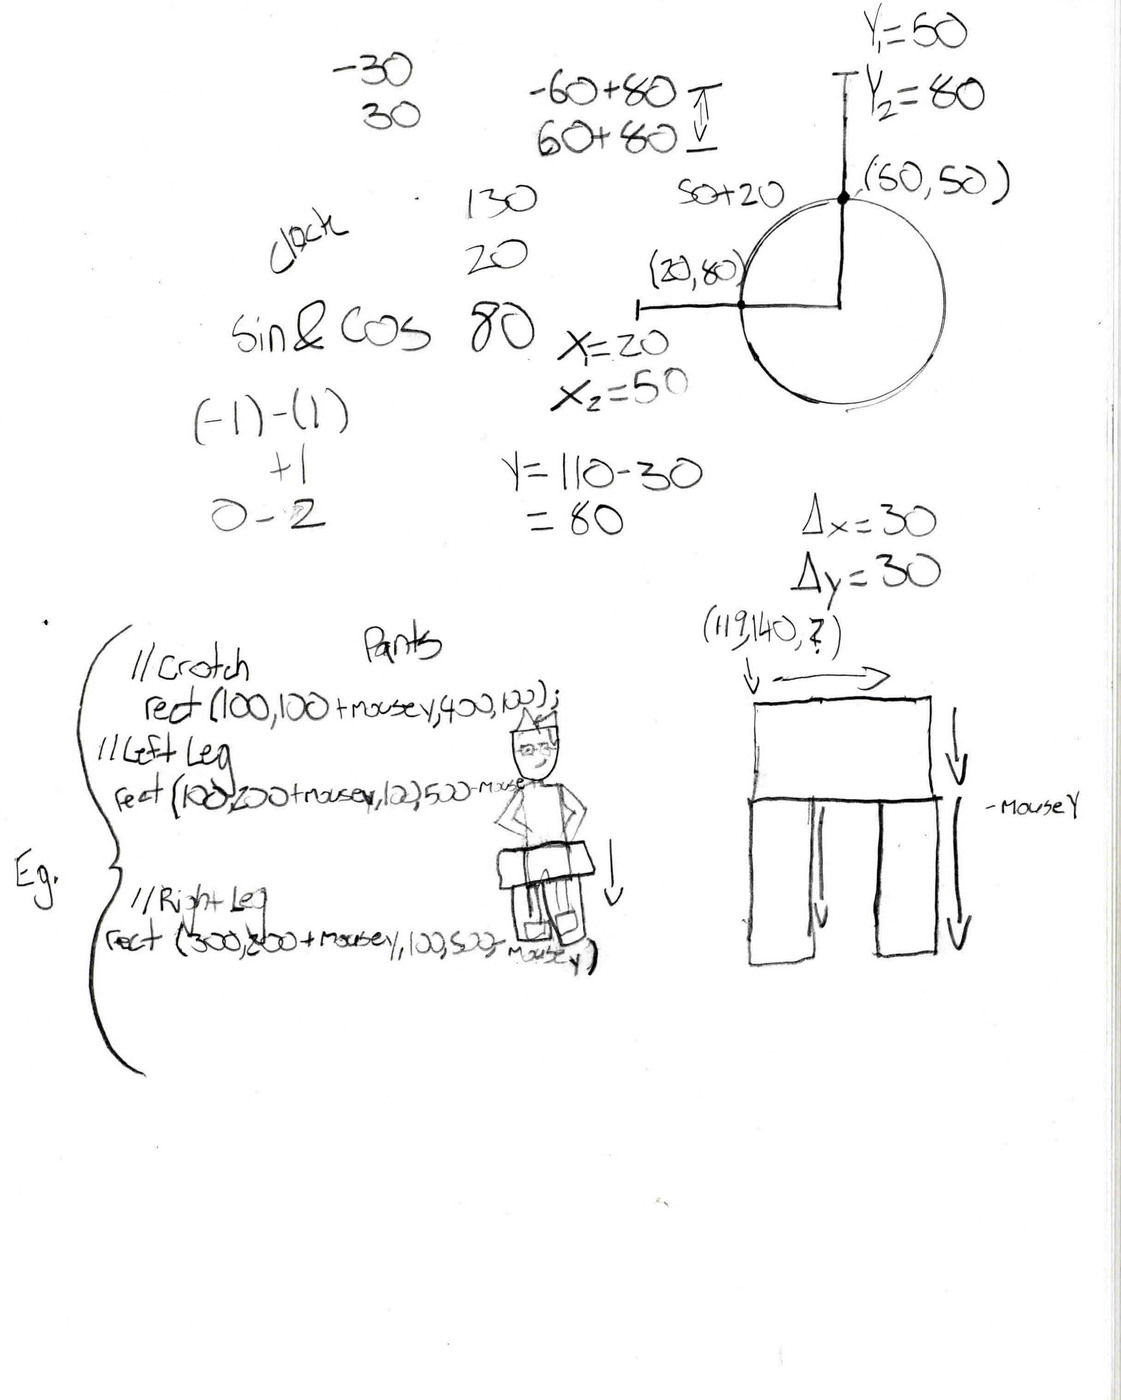 -30
30
-60+80
60+80
Y1=50
Y2=80
(50,50)
50+20
130
20
80
clock
sin & cos
(20,80)
X1=20
X2=50
(-1)-(1)
+1
0-2
Y=110-30
=80
Δx=30
Δy=30
(119,140,?)
-mouseY
Eg.
Pants
//Crotch
rect(100,100+mouseY,400,100);
//Left Leg
rect(100,200+mouseY,100,500-mouse
//Right Leg
rect(300,200+mouseY,100,500-mouseY)